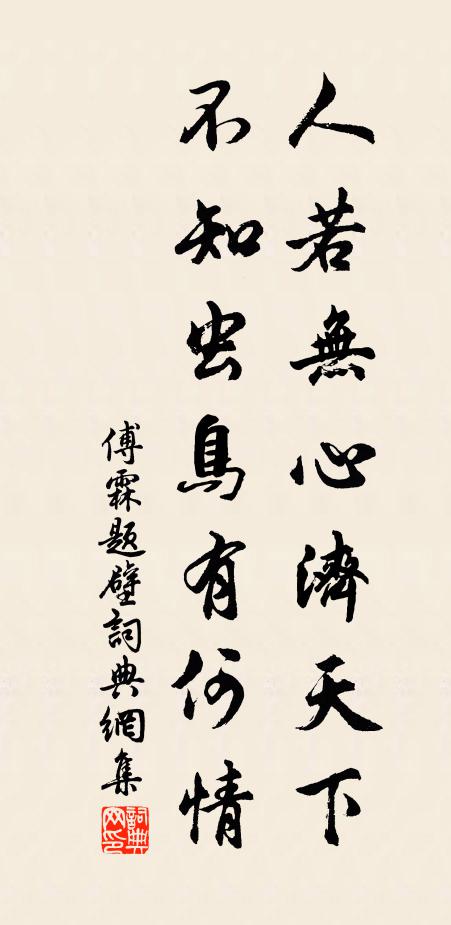 人若無心濟天下
不知虫鳥有何情
傅霖題壁詞典網集
詞典网印